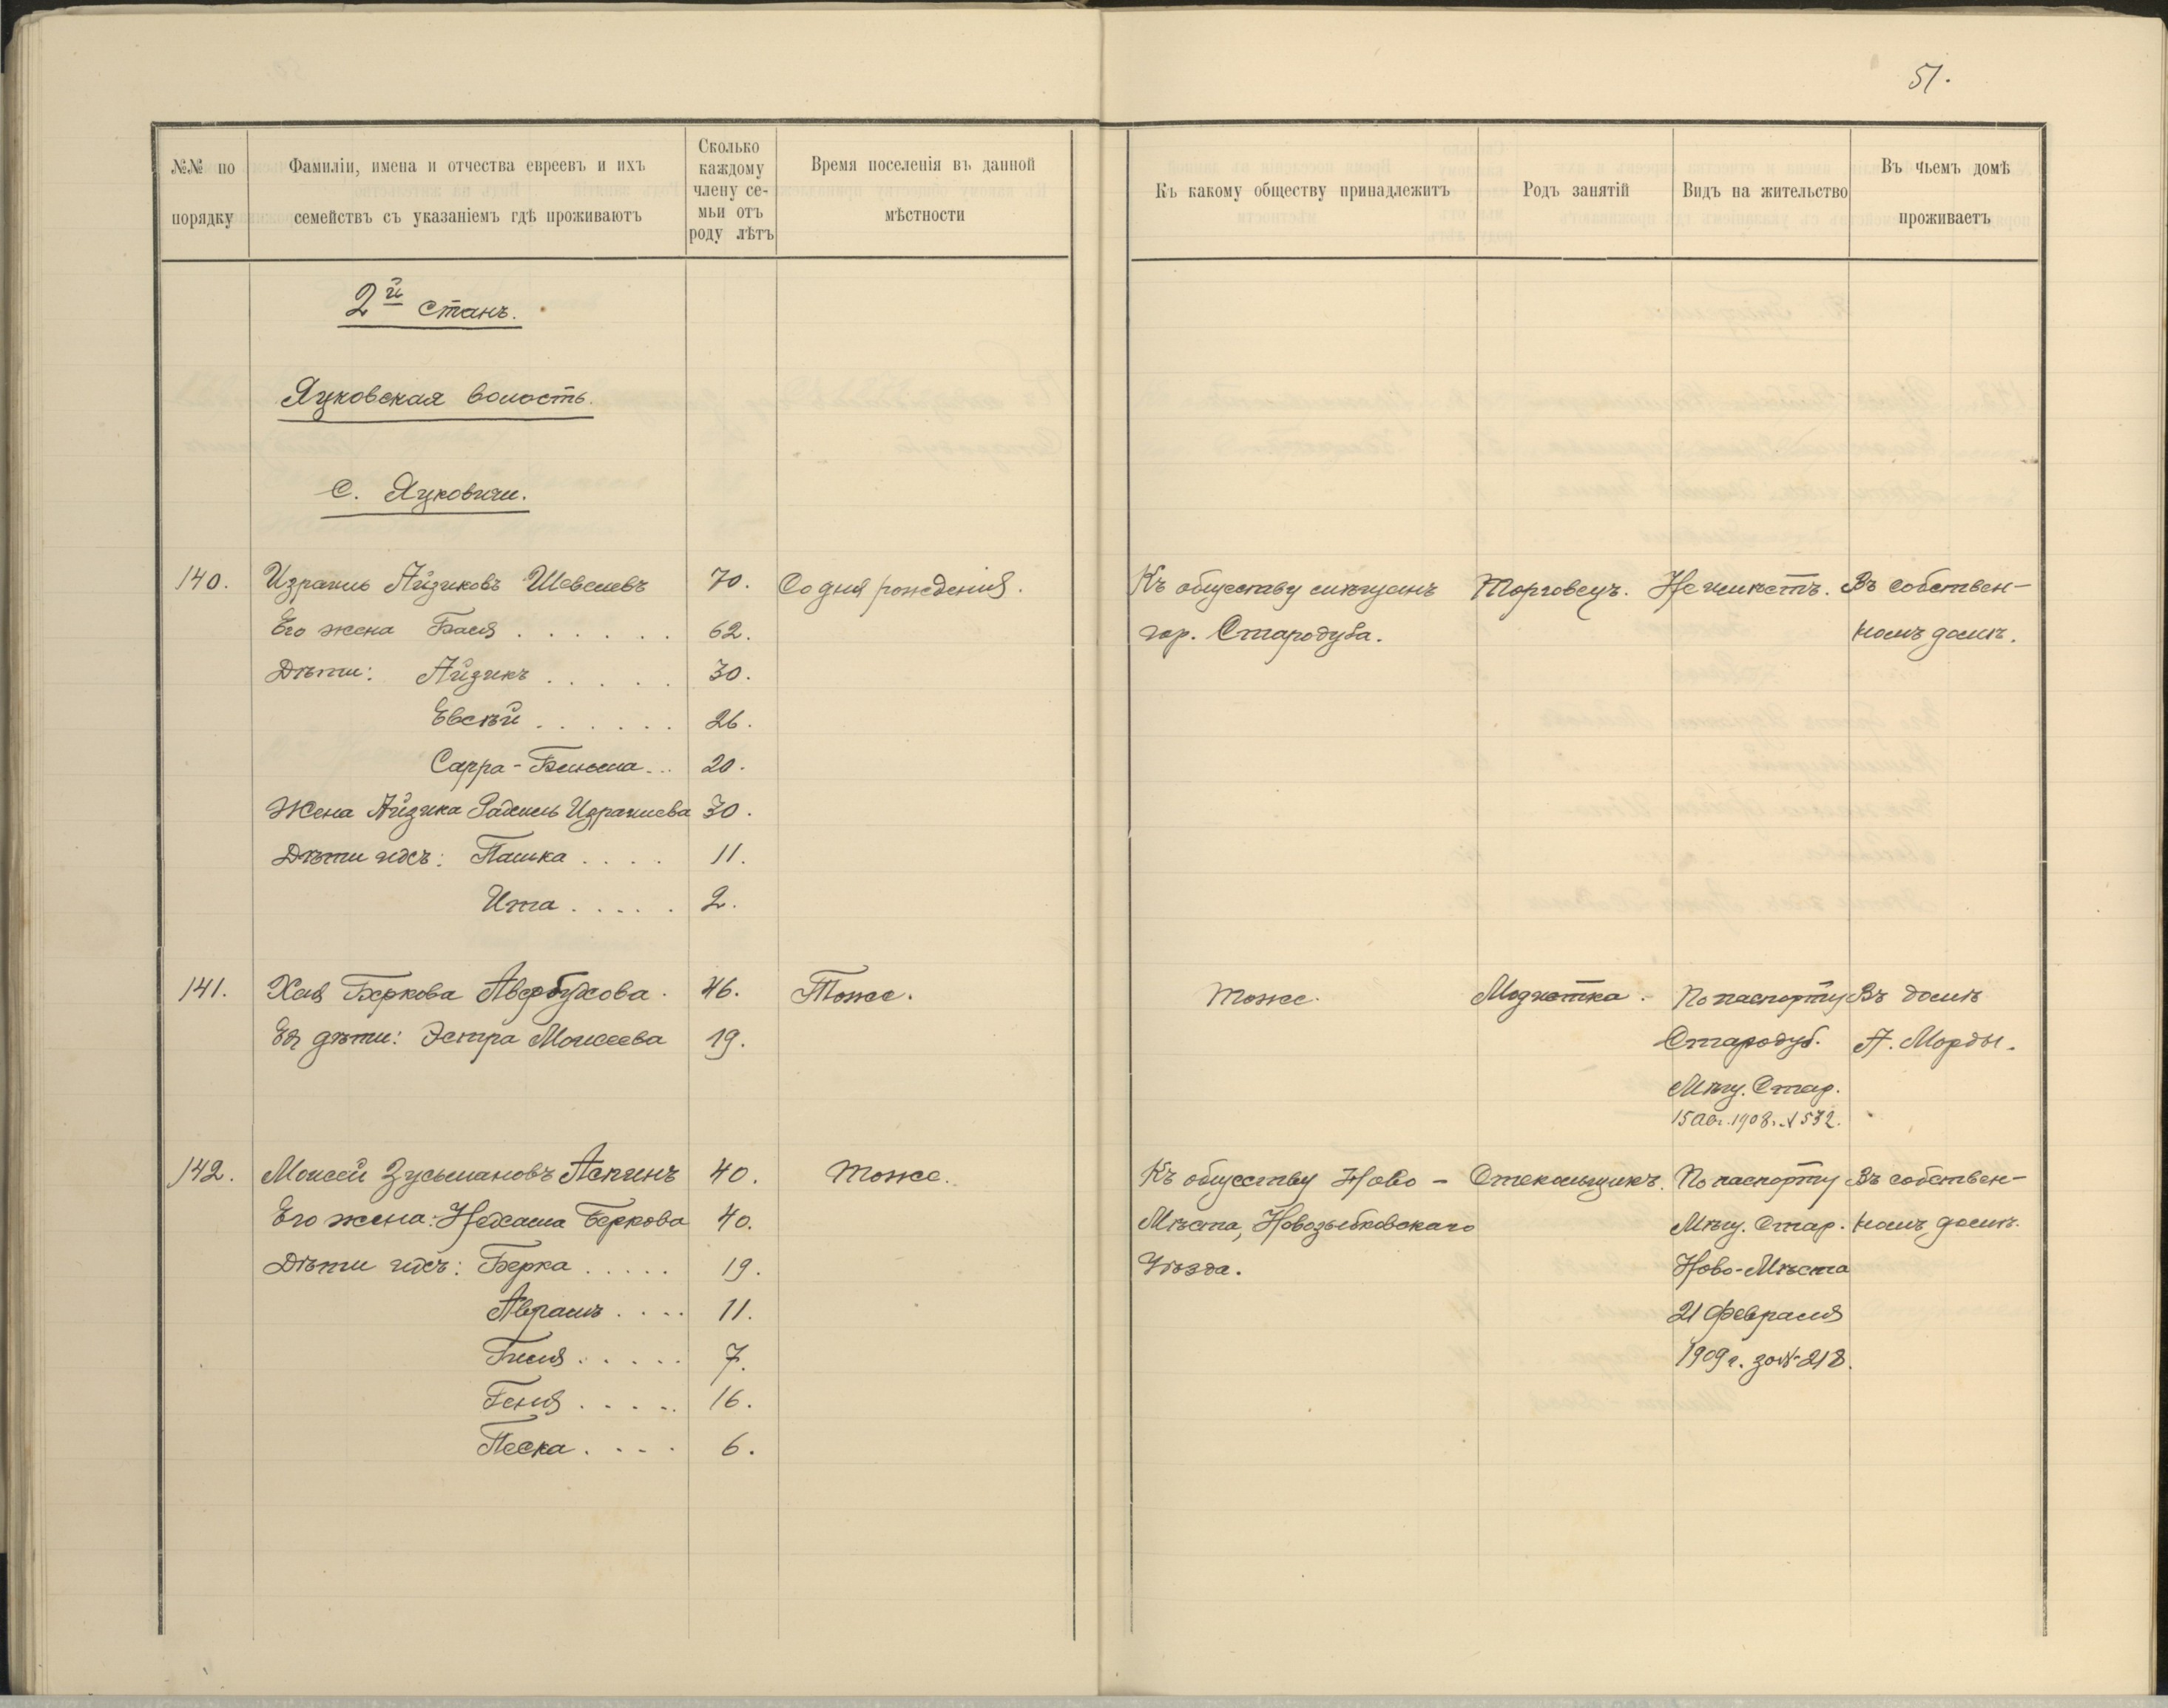 51.
№№ по порядку
Фамиліи, имена и отчества евреевъ и ихъ семействъ съ указаніемъ гдѣ проживаютъ
Сколько каждому члену семьи отъ роду лѣтъ
Время поселенія въ данной мѣстности
Къ какому обществу принадлежитъ
Родъ занятій
Видъ на жительство
Въ чьемъ домѣ проживаетъ
2й станъ.
Яцковская волость.
С. Яцковичи.
140. Израиль Айзиковъ Шевелевъ 70. Со дня рожденія. Къ обществу мѣщанъ Торговецъ. Не имѣетъ. Въ собствен-
Его жена Бася 62. гор. Стародуба. номъ домѣ.
Дѣти: Айзикъ 30.
Евсѣй 26.
Сарра-Бейла 20.
Жена Айзика Рахиль Израилева 30.
Дѣти ихъ: Пашка 11.
Ита 2.
141. Хая Беркова Авербухова. 46. Тоже. Тоже. Модистка. По паспорту Въ домѣ
Ея дѣти: Эстра Моисеева 19. Стародуб. А. Морды.
Мѣщ. Стар.
15 Авг. 1908. № 532.
142. Моисей Зусьмановъ Аскинъ 40. Тоже. Къ обществу Ново- Стекольщикъ. По паспорту Въ собствен-
Его жена: Нехама Беркова 40. Мѣста, Новозыбковскаго Мѣщ. Стар. номъ домѣ.
Дѣти ихъ: Берка 19. Уѣзда. Ново-Мѣста
Абрамъ 11. 21 февраля
7. 1909 г. за № 218.
Геня 16.
Песка 6.